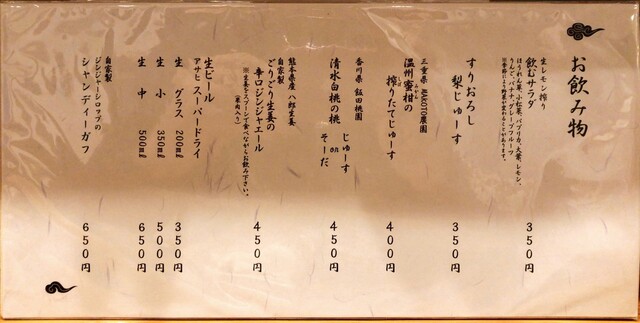 お飲み物
生レモン搾り
飲むサラダ
ほうれん草、小松菜、パプリカ、大葉、レモン、
りんご、バナナ、グレープフルーツ
※季節により野菜が変わることがあります。
350円
すりおろし
梨じゅーす
350円
三重県 MAKOTO農園
温州蜜柑の
搾りたてじゅーす
400円
香川県 飯田桃園
清水白桃の桃 じゅーす or そーだ
450円
熊本県産 八郎生姜
自家製
ごりごり生姜の
辛口ジンジャエール
※生姜をスプーンで食べながらお飲み下さい。
(果肉入り)
450円
生ビール
アサヒ スーパードライ
生 グラス 200㎖ 350円
生 小 350㎖ 500円
生 中 500㎖ 650円
自家製
ジンジャーシロップの
シャンディーガフ
650円